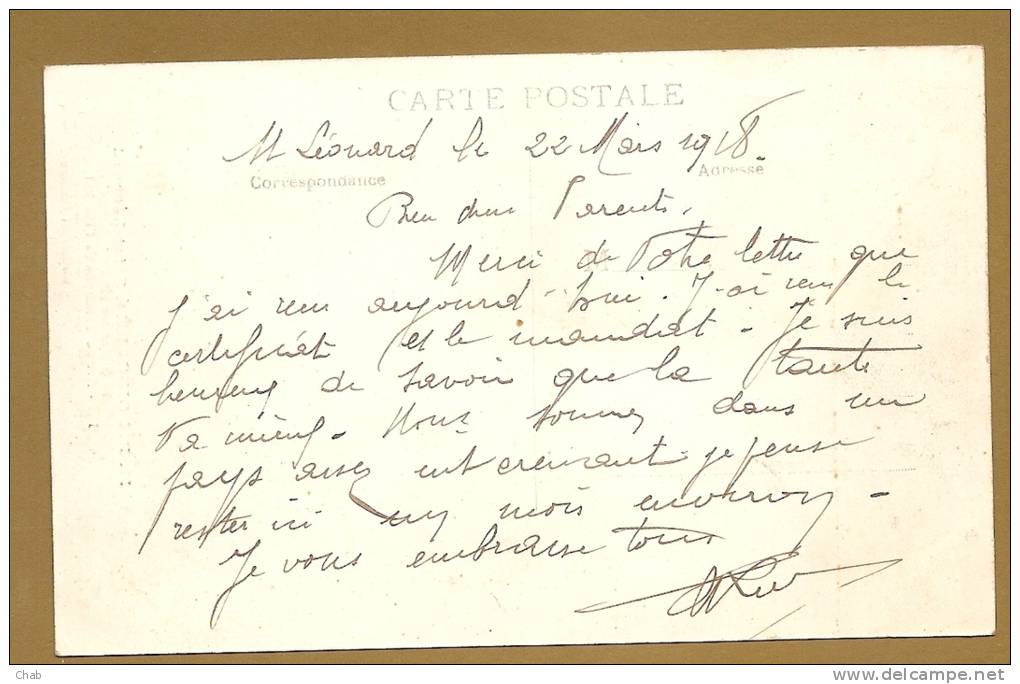 CARTE POSTALE
St Léonard le 22 Mars 1918.
Correspondance
Adresse
Bien chers Parents,
Merci de votre lettre que
j'ai reçu aujourd'hui. J'ai reçu le
certificat et le mandat - Je suis
heureux de savoir que la tante
va mieux - Nous sommes dans un
pays assez intéressant - je pense
rester ici un mois environ -
Je vous embrasse tous
Chab
www.delcampe.net